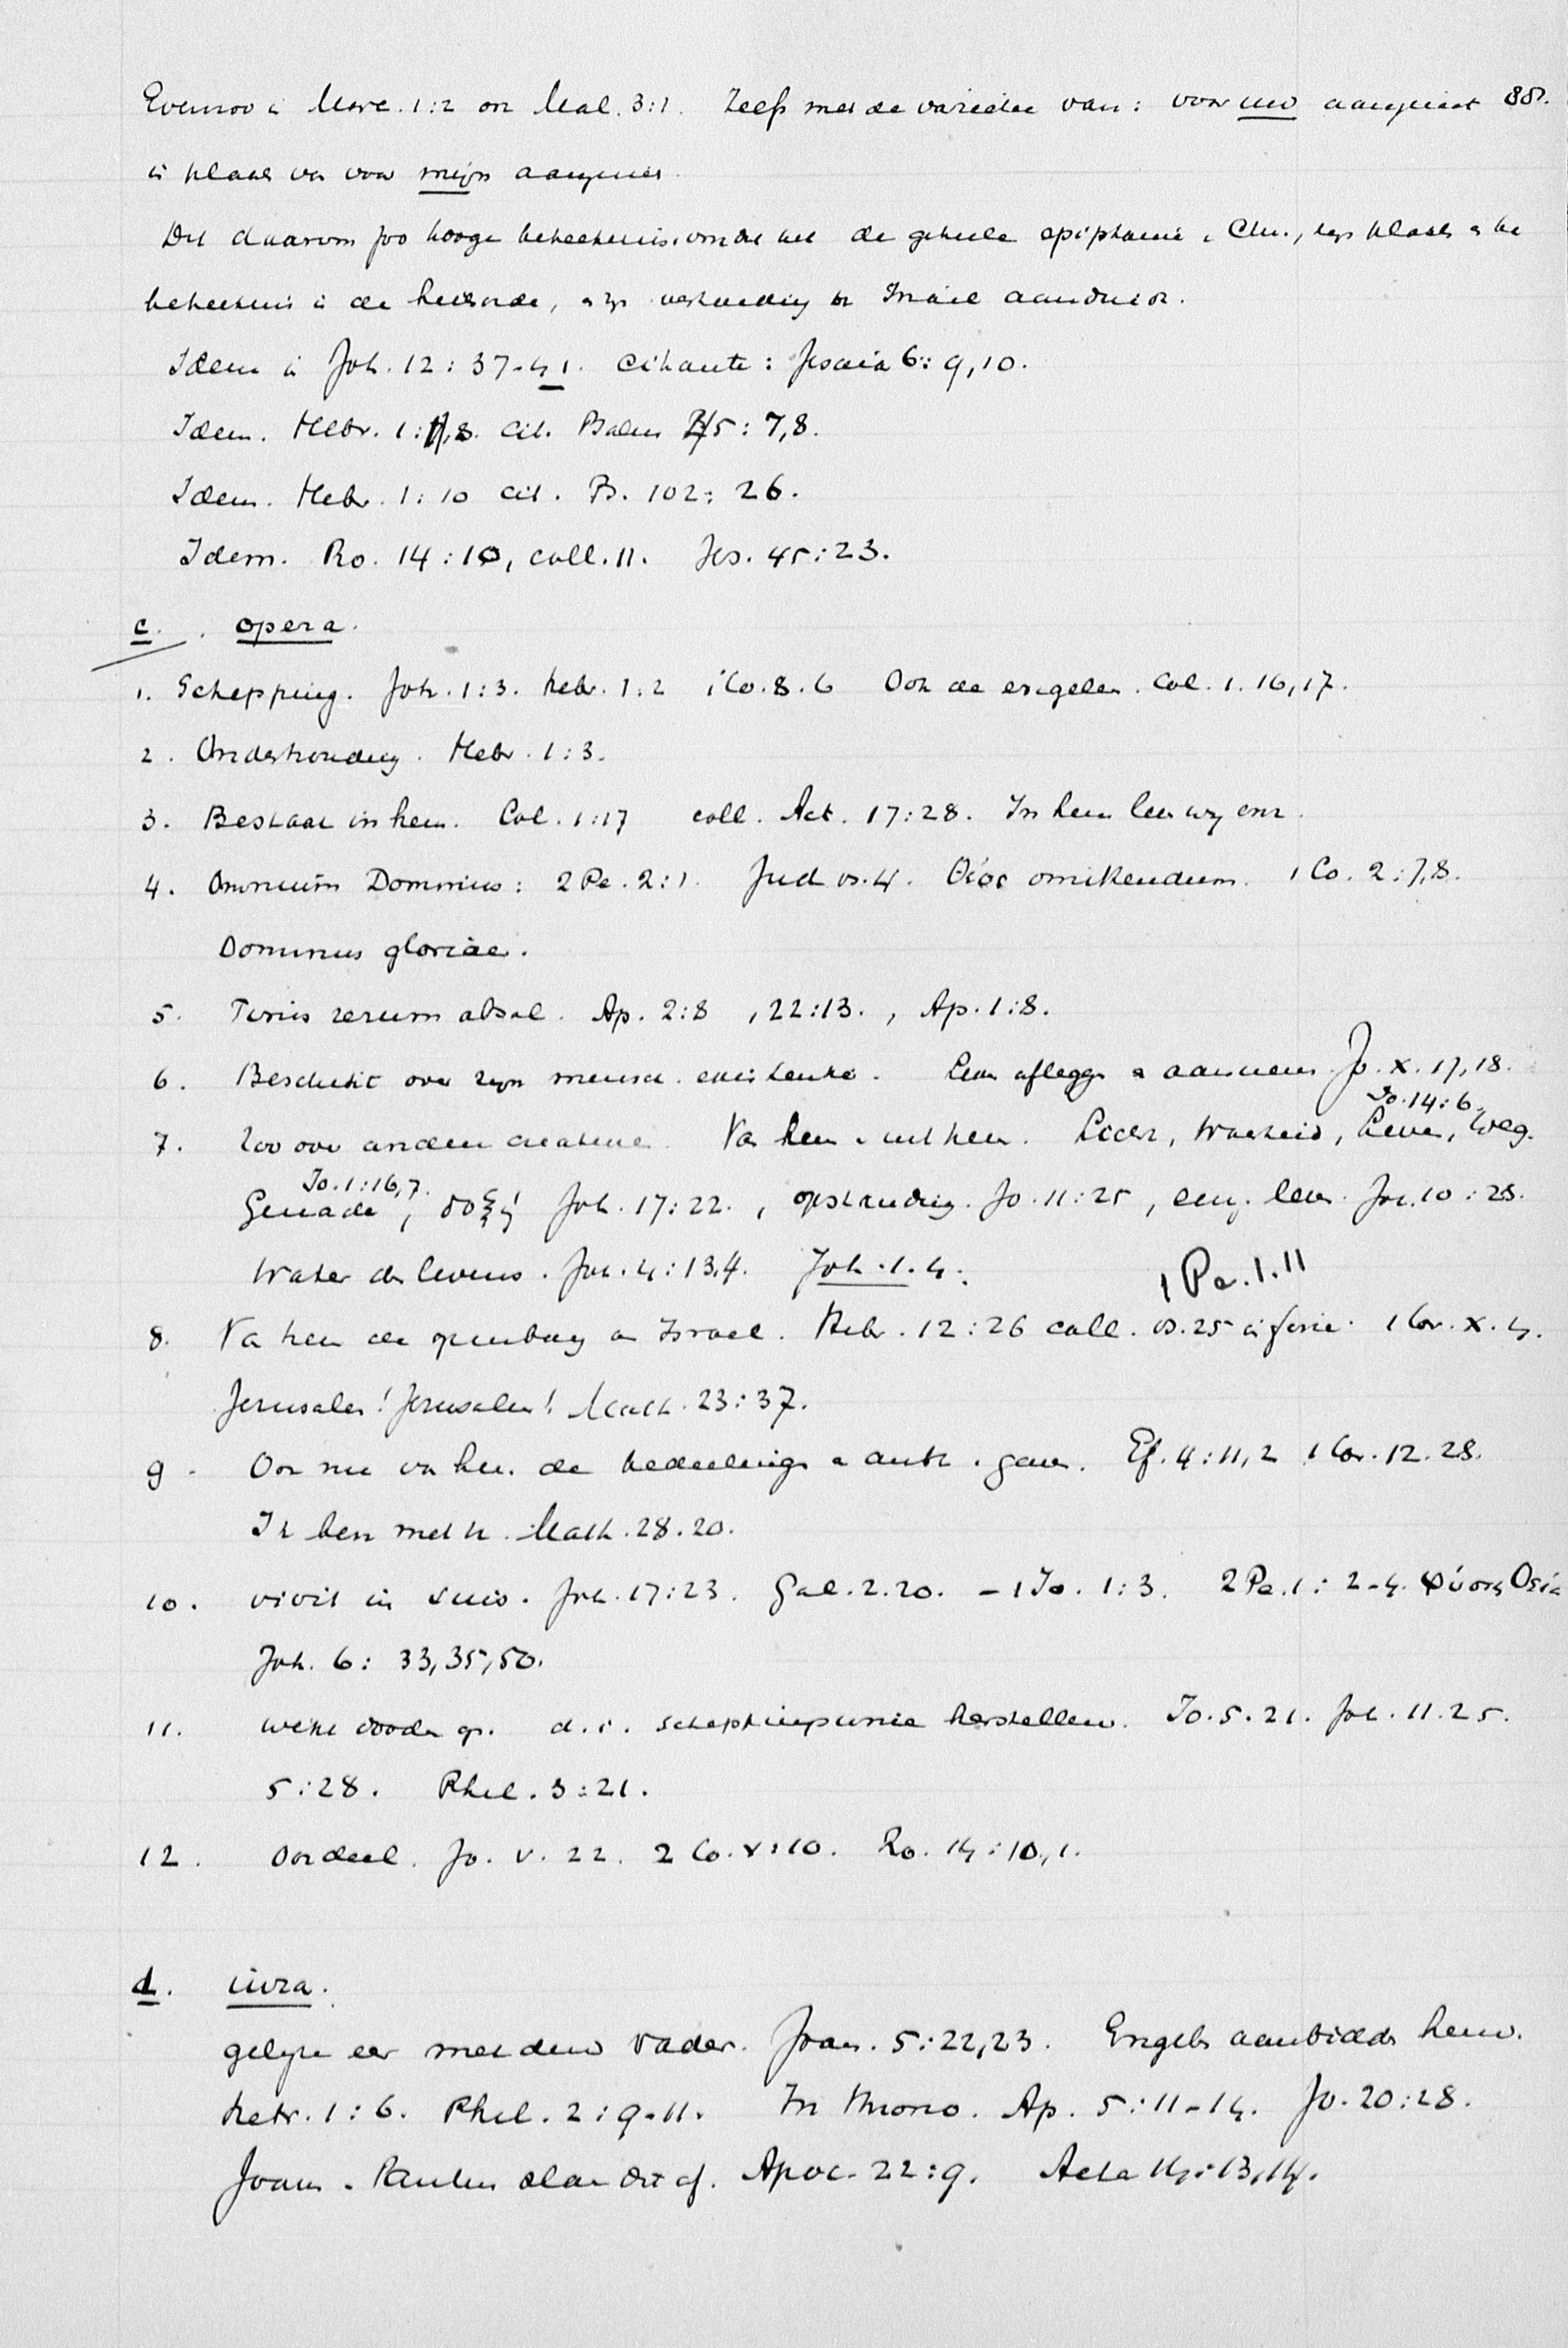 Evenzoo i Marc. 1:2 en Mal. 3:1. Zelfs met de variatie van: voor uw aangezicht 88).
in plaats van voor mijn aangezicht.
Dit daarom zoo hooge beteekenis, omdat het de geheele epiphanie v. Chr., zijn plaats en
beteekenis in de heilsorde, en zijn verhouding tot Israel aanduidt.
Idem i Joh. 12:37-41. Citaat: Jesaia 6:9,10.
Idem. Hebr. 1: ,8. cit. Psalm 45:7,8.
Idem. Hebr. 1:10 cit. Ps. 102:26.
Idem. Ro. 14:10, coll. 11. Jes. 45:23.
c. opera.
1. Schepping. Joh. 1:3. Hebr. 1:2 1 Co. 8.6 Ook de engelen. Col. 1.16,17.
2. Onderhouding. Hebr. 1:3.
3. Bestaat in hem. Col. 1:17 coll. Act. 17:28. In hem leven wij enz.
4. Omnium Dominus: 2 Pe. 2:1. Jud vs. 4. 1 Co. 2:7,8.
Dominus gloriae.
5. Finis rerum absol. Ap. 2:8, 22:13., Ap. 1:8.
6. Beschikt over zijn mensch. existentie. Leven afleggen en aannemen Jo. X. 17,18.
Jo. 14:6.
7. Zoo over andere creaturen. Van hem en uit hem. Licht, Waarheid, Leven, Weg.
Jo. 1:16,7.
Genade, δόξα Joh. 17:22., opstanding. Jo. 11:25, eeuw. leven Joh. 10:28.
Water des levens. Joh. 4:13,4. Joh. 1.4.
1 Pe. 1.11
8. Van hem de openbaring aan Israel. Hebr. 12:26 coll. vs. 25 in fine. 1 Cor. X. 4.
Jerusalem! Jerusalem! Math. 23:37.
9. Ook nu van hem de bedeeling v ambt en gaven. Ef. 4:11,2 1 Cor. 12.28.
Ik ben met u. Math. 28.20.
10. vivit in suis. Joh. 17:23. Gal. 2.20. - 1 Jo. 1:3. 2 Pe. 1:2-4. Φύσις Θεία
Joh. 6: 33,35,50.
11. wekt dooden op. d.i. herstellen. Jo. 5.21. Joh. 11.25.
5:28. Phil. 3:21.
12. Oordeel. Jo. V. 22. 2 Co. V:10. Ro. 14:10,1.
d. iura.
gelijke eer met den Vader. Joan. 5:22,23. Engelen aanbidden hem.
Hebr. 1:6. Phil. 2:9-11. In throno. Ap. 5:11-14. Jo. 20:28.
Joan. en Paulus slaan dit af. Apoc. 22:9. Acta 14:13,14.